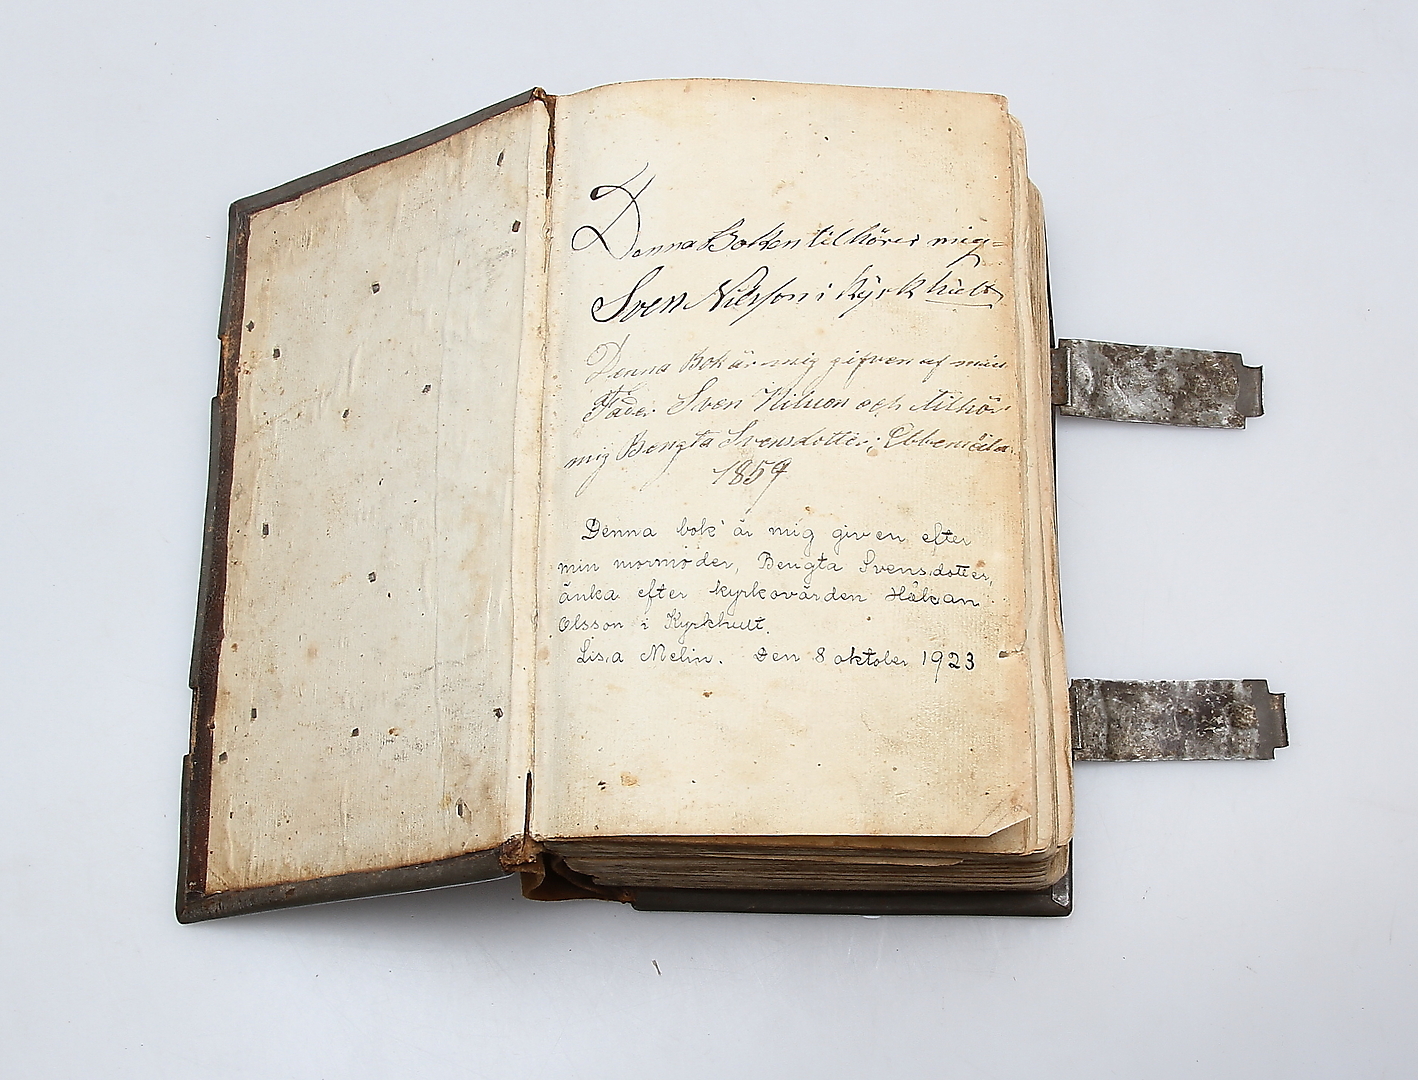 Denna Boken tilhörer mig
Sven Nilsson i Kyrkhult
Denna Bok är mig gifven af min
Fader Sven Nilsson och tilhör
mig Bengta Svensdotter i Ebbemåla
1859
Denna bok är mig given efter
min mormoder, Bengta Svensdotter,
änka efter kyrkovärden Håkan
Olsson i Kyrkhult.
Lisa Melin. Den 8 oktober 1923